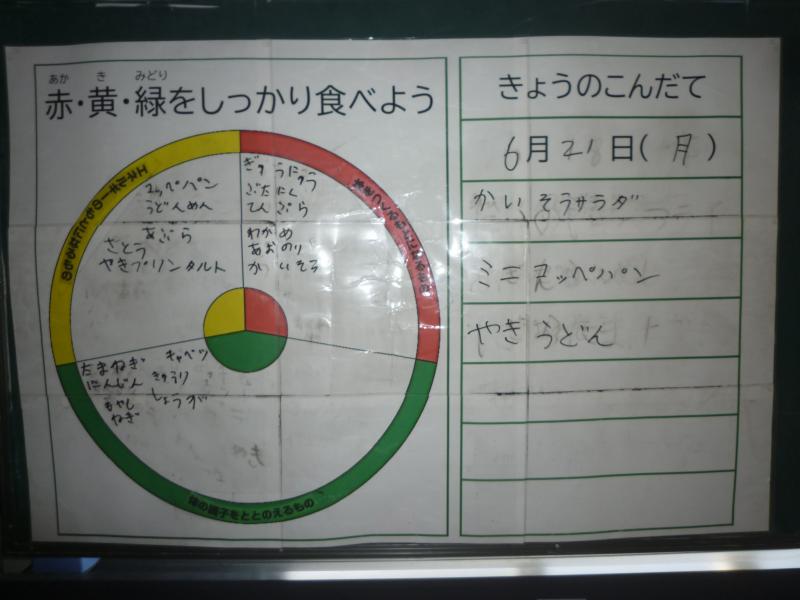 あか き みどり
赤・黄・緑をしっかり食べよう
エネルギーのもとになるもの
体をつくるもとになるもの
体の調子をととのえるもの
コッペパン
うどんめん
あぶら
さとう
やきプリンタルト
ぎゅうにゅう
ぶたにく
てんぷら
わかめ
あおのり
かいそう
たまねぎ
にんじん
もやし
ねぎ
キャベツ
きゅうり
しょうが
きょうのこんだて
6月21日(月)
かいそうサラダ
ミニコッペパン
やきうどん